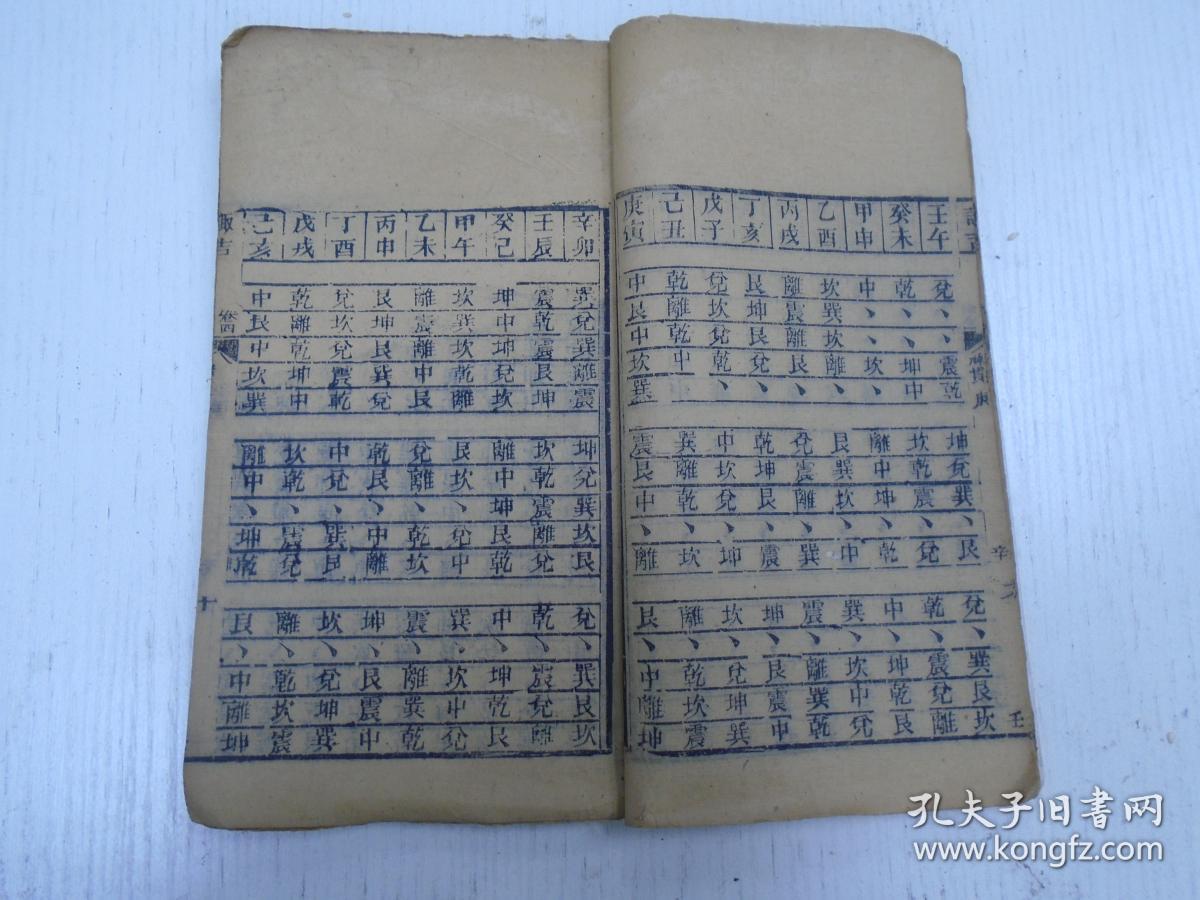 壬午兌丶丶震乾坤兌巽丶艮兌丶巽艮坎
癸未乾丶丶坤中坎乾震丶兌乾丶震兌離
甲申中丶丶坎丶離中坤丶乾中丶坤乾艮
乙酉坎巽坎離丶艮巽坎丶中巽丶坎中兌
丙戌離震離艮丶兌震離丶巽震丶離巽乾
丁亥艮坤艮兌丶乾坤艮丶震坤丶艮震中
戊子兌坎兌乾丶中坎兌丶坤坎丶兌坤巽
己丑乾離乾中丶巽離乾丶坎離丶乾坎震
庚寅中艮中坎巽震艮中丶離艮丶中離坤
辛卯巽兌巽離震坤兌巽坎艮兌丶巽艮坎
壬辰震乾震艮坤坎乾震離兌乾丶震兌離
癸巳坤中坤兌坎離中坤艮乾中丶坤乾艮
甲午坎巽坎乾離艮坎丶兌中巽丶坎中兌
乙未離震離中艮兌離丶乾坎震丶離巽乾
丙申艮坤艮巽兌乾艮丶中離坤丶艮震中
丁酉兌坎兌震乾中兌丶巽艮坎丶兌坤巽
戊戌乾離乾坤中坎乾丶震兌離丶乾坎震
己亥中艮中坎巽離中丶坤乾艮丶中離坤
諏吉
卷四
十
孔夫子旧书网
www.kongfz.com